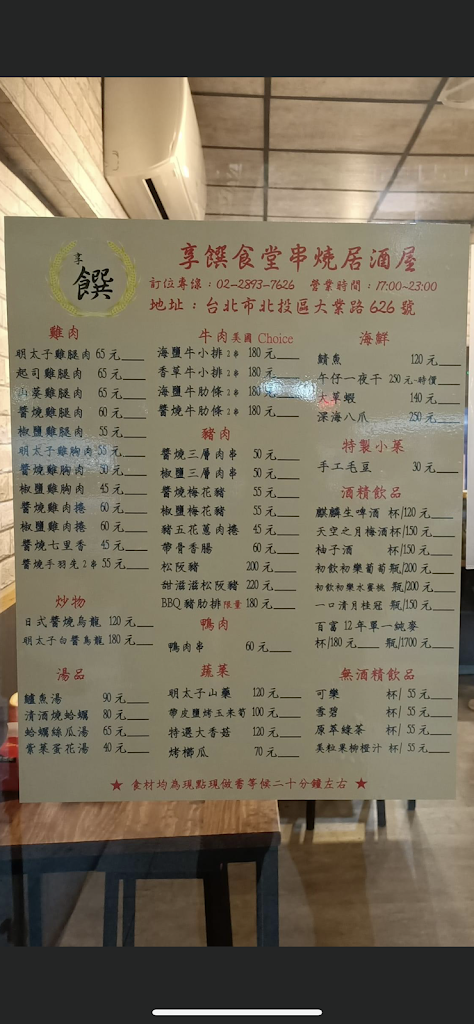 享
饌
享饌食堂串燒居酒屋
訂位專線：02-2893-7626 營業時間：17:00~23:00
地址：台北市北投區大業路 626 號
雞肉
明太子雞腿肉 65 元
起司雞腿肉 65 元
山葵雞腿肉 60 元
醬燒雞腿肉 60 元
椒鹽雞腿肉 55 元
明太子雞胸肉 55 元
醬燒雞胸肉 50 元
椒鹽雞胸肉 45 元
醬燒雞肉捲 60 元
椒鹽雞肉捲 60 元
醬燒七里香 45 元
醬燒手羽先 2 串 55 元
炒物
日式醬燒烏龍 120 元
明太子白醬烏龍 180 元
湯品
鱸魚湯 90 元
清酒燒蛤蠣 80 元
蛤蠣絲瓜湯 65 元
紫菜蛋花湯 40 元
牛肉美國 Choice
海鹽牛小排 2 串 180 元
香草牛小排 2 串 180 元
海鹽牛肋條 2 串 180 元
醬燒牛肋條 2 串 180 元
豬肉
醬燒三層肉串 50 元
椒鹽三層肉串 50 元
醬燒梅花豬 55 元
椒鹽梅花豬 55 元
豬五花蔥肉捲 45 元
帶骨香腸 60 元
松阪豬 200 元
甜滋滋松阪豬 220 元
BBQ 豬肋排限量 180 元
鴨肉
鴨肉串 60 元
蔬菜
明太子山藥 120 元
帶皮鹽烤玉米筍 100 元
特選大香菇 120 元
烤櫛瓜 70 元
海鮮
鯖魚 120 元
午仔一夜干 250 元~時價
大草蝦 140 元
深海八爪 250 元
特製小菜
手工毛豆 30 元
酒精飲品
麒麟生啤酒 杯/120 元
天空之月梅酒 杯/150 元
柚子酒 杯/150 元
初飲初樂葡萄 瓶/200 元
初飲初樂水蜜桃 瓶/200 元
一口清月桂冠 瓶/150 元
百富 12 年單一純麥
杯/180 元 瓶/1700 元
無酒精飲品
可樂 杯/ 55 元
雪碧 杯/ 55 元
原萃綠茶 杯/ 55 元
美粒果柳橙汁 杯/ 55 元
★ 食材均為現點現做需等候二十分鐘左右 ★